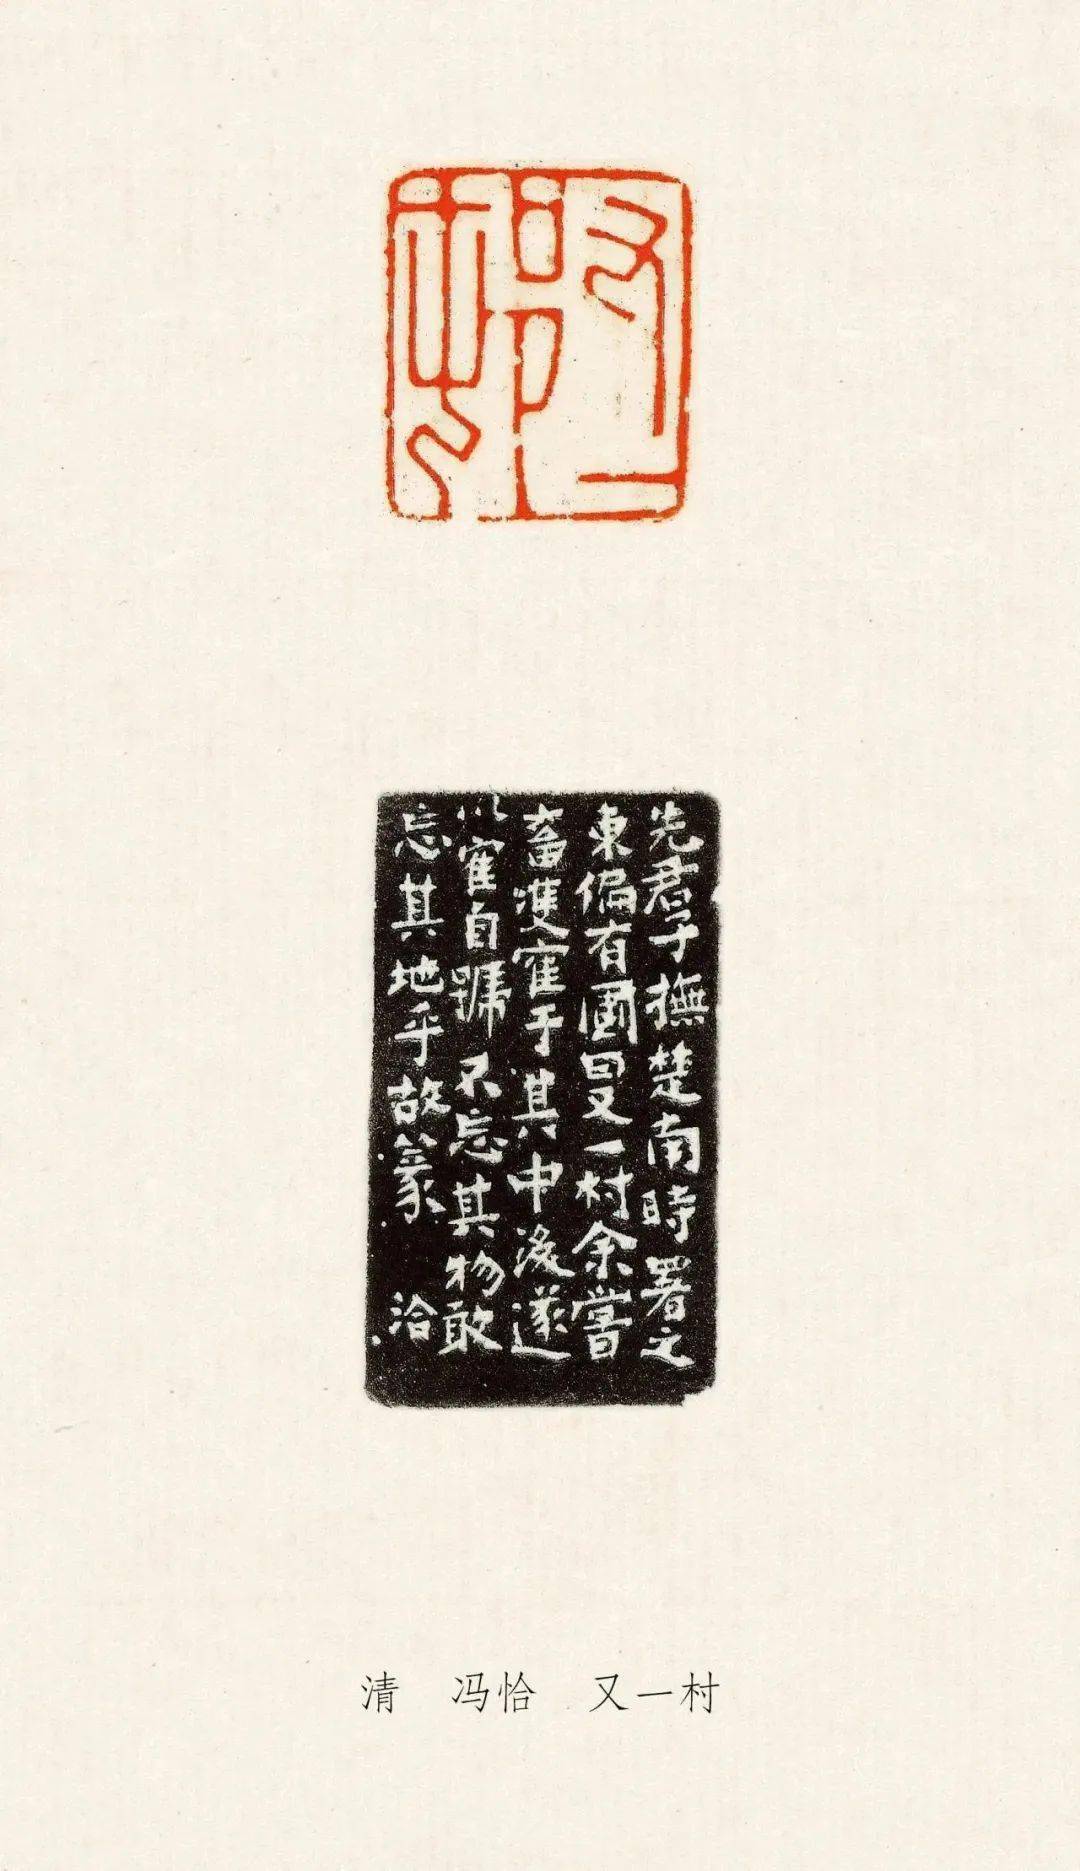 又一邨
先君子撫楚南時署之
東偏有園曰又一村余嘗
畜雙寉于其中後遂
以寉自號不忘其物敢
忘其地乎故篆 洽
清 冯恰 又一村